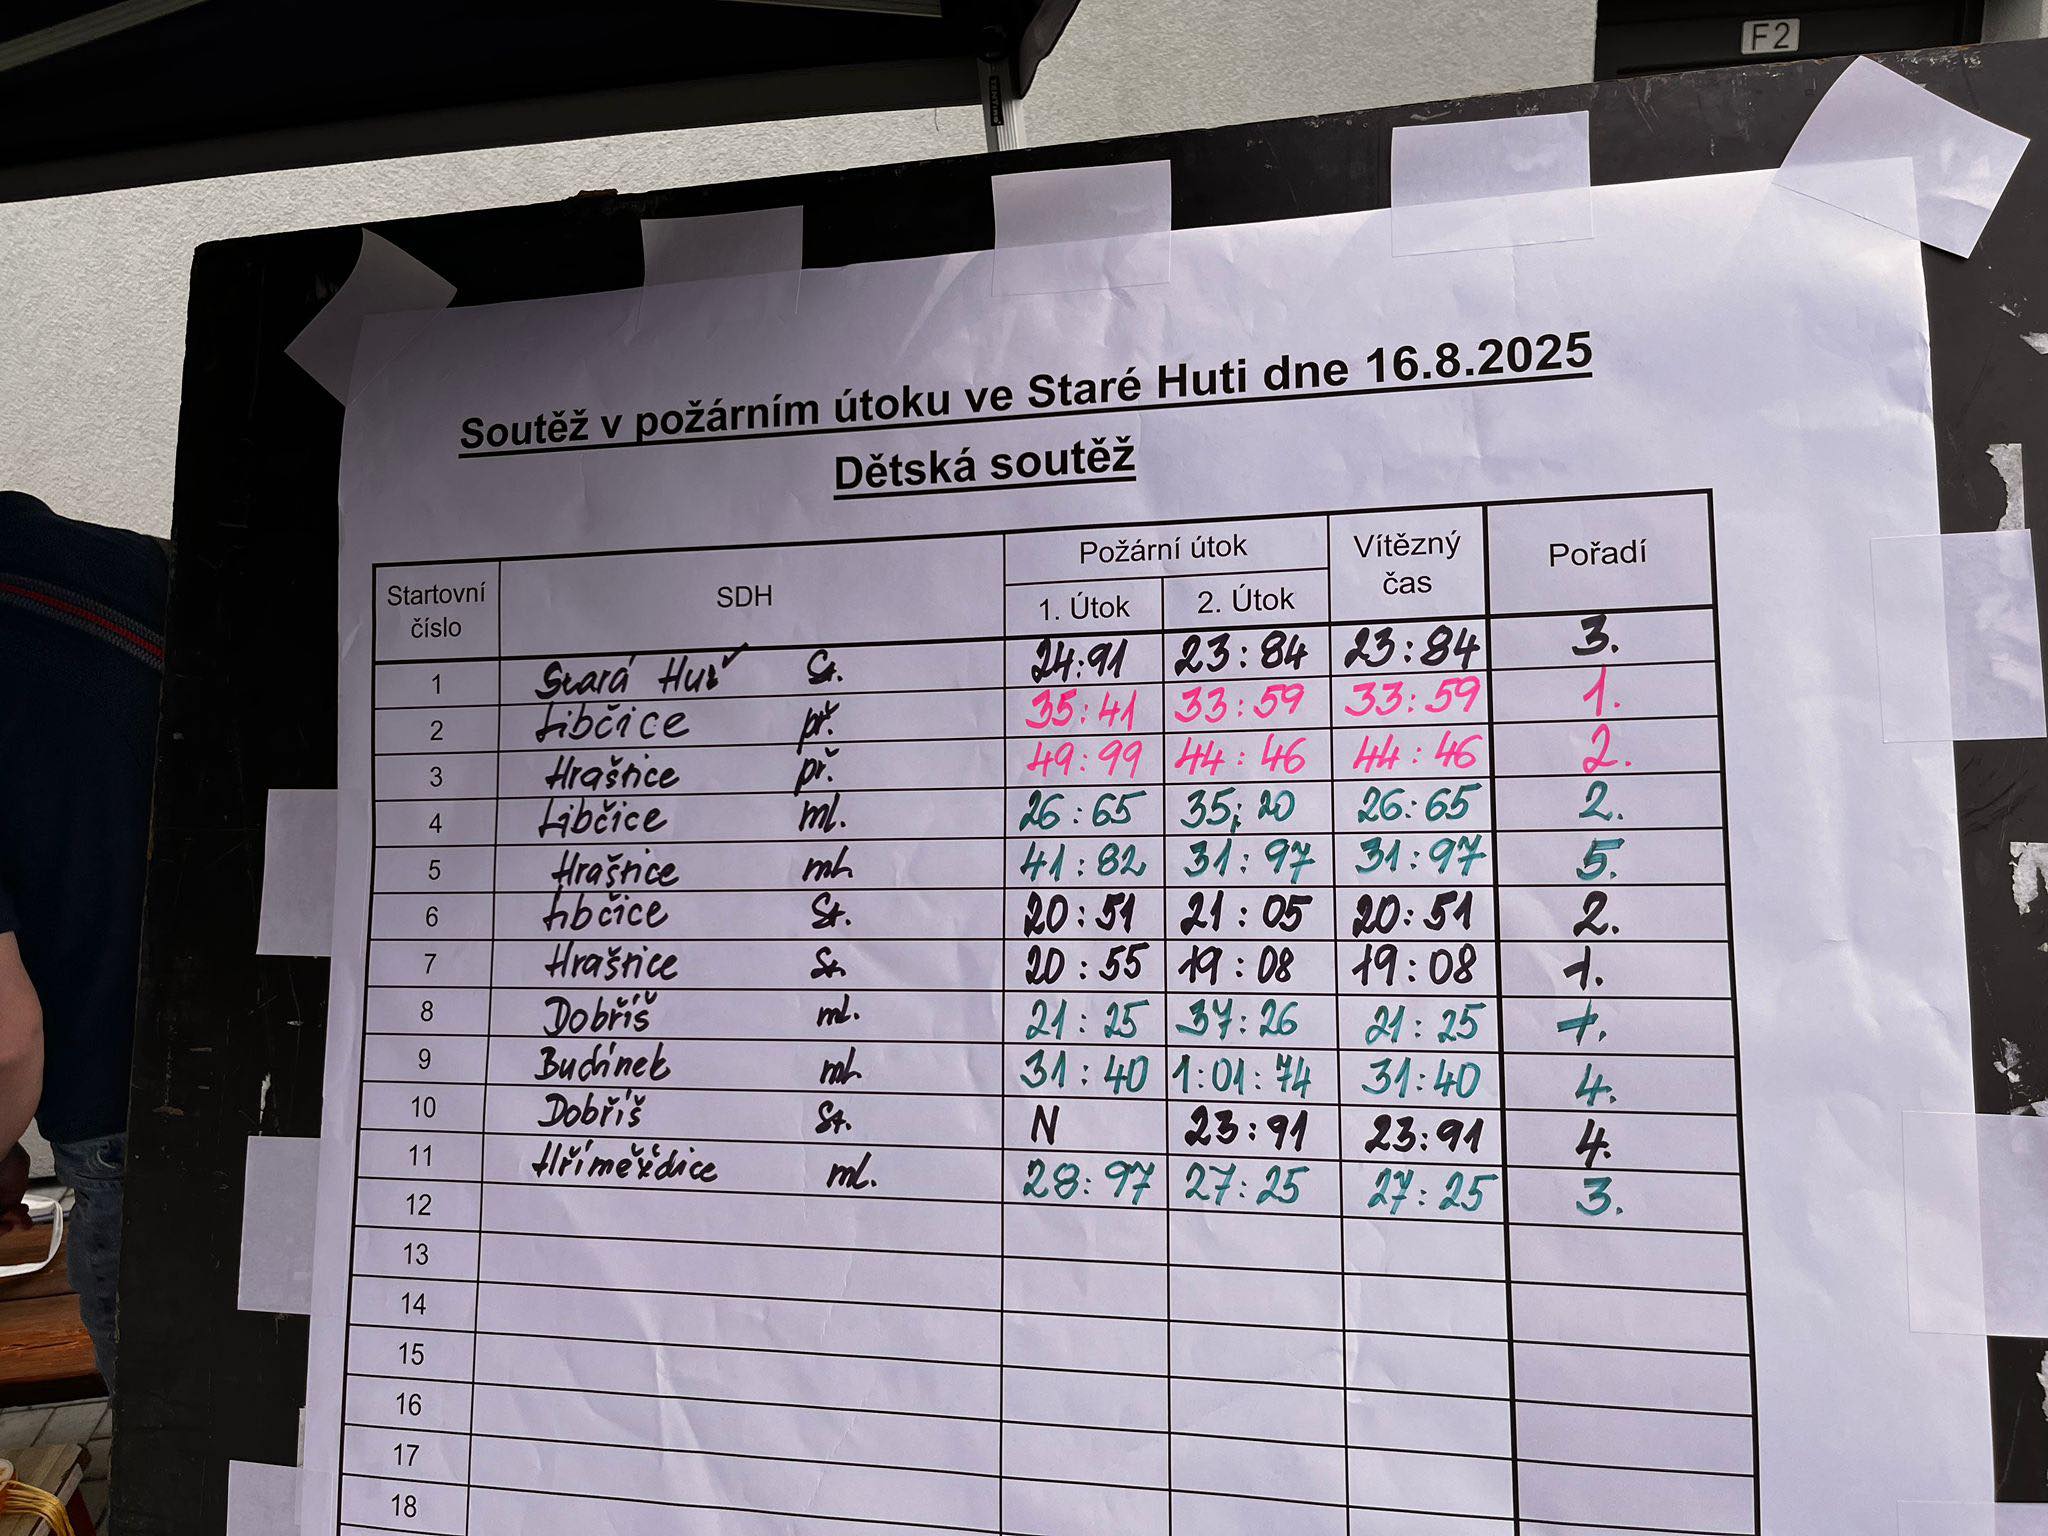 F2
TENTINO
Soutěž v požárním útoku ve Staré Huti dne 16.8.2025
Dětská soutěž
Startovní číslo SDH Požární útok 1. Útok 2. Útok Vítězný čas Pořadí
1 Stará Huť St. 24:91 23:84 23:84 3.
2 Libčice př. 35:41 33:59 33:59 1.
3 Hrašnice př. 49:99 44:46 44:46 2.
4 Libčice ml. 26:65 35:20 26:65 2.
5 Hrašnice ml. 41:82 31:97 31:97 5.
6 Libčice St. 20:51 21:05 20:51 2.
7 Hrašnice St. 20:55 19:08 19:08 1.
8 Dobříš ml. 21:25 37:26 21:25 1.
9 Budínek ml. 31:40 1:01:74 31:40 4.
10 Dobříš St. N 23:91 23:91 4.
11 Hříměždice ml. 28:97 27:25 27:25 3.
12
13
14
15
16
17
18